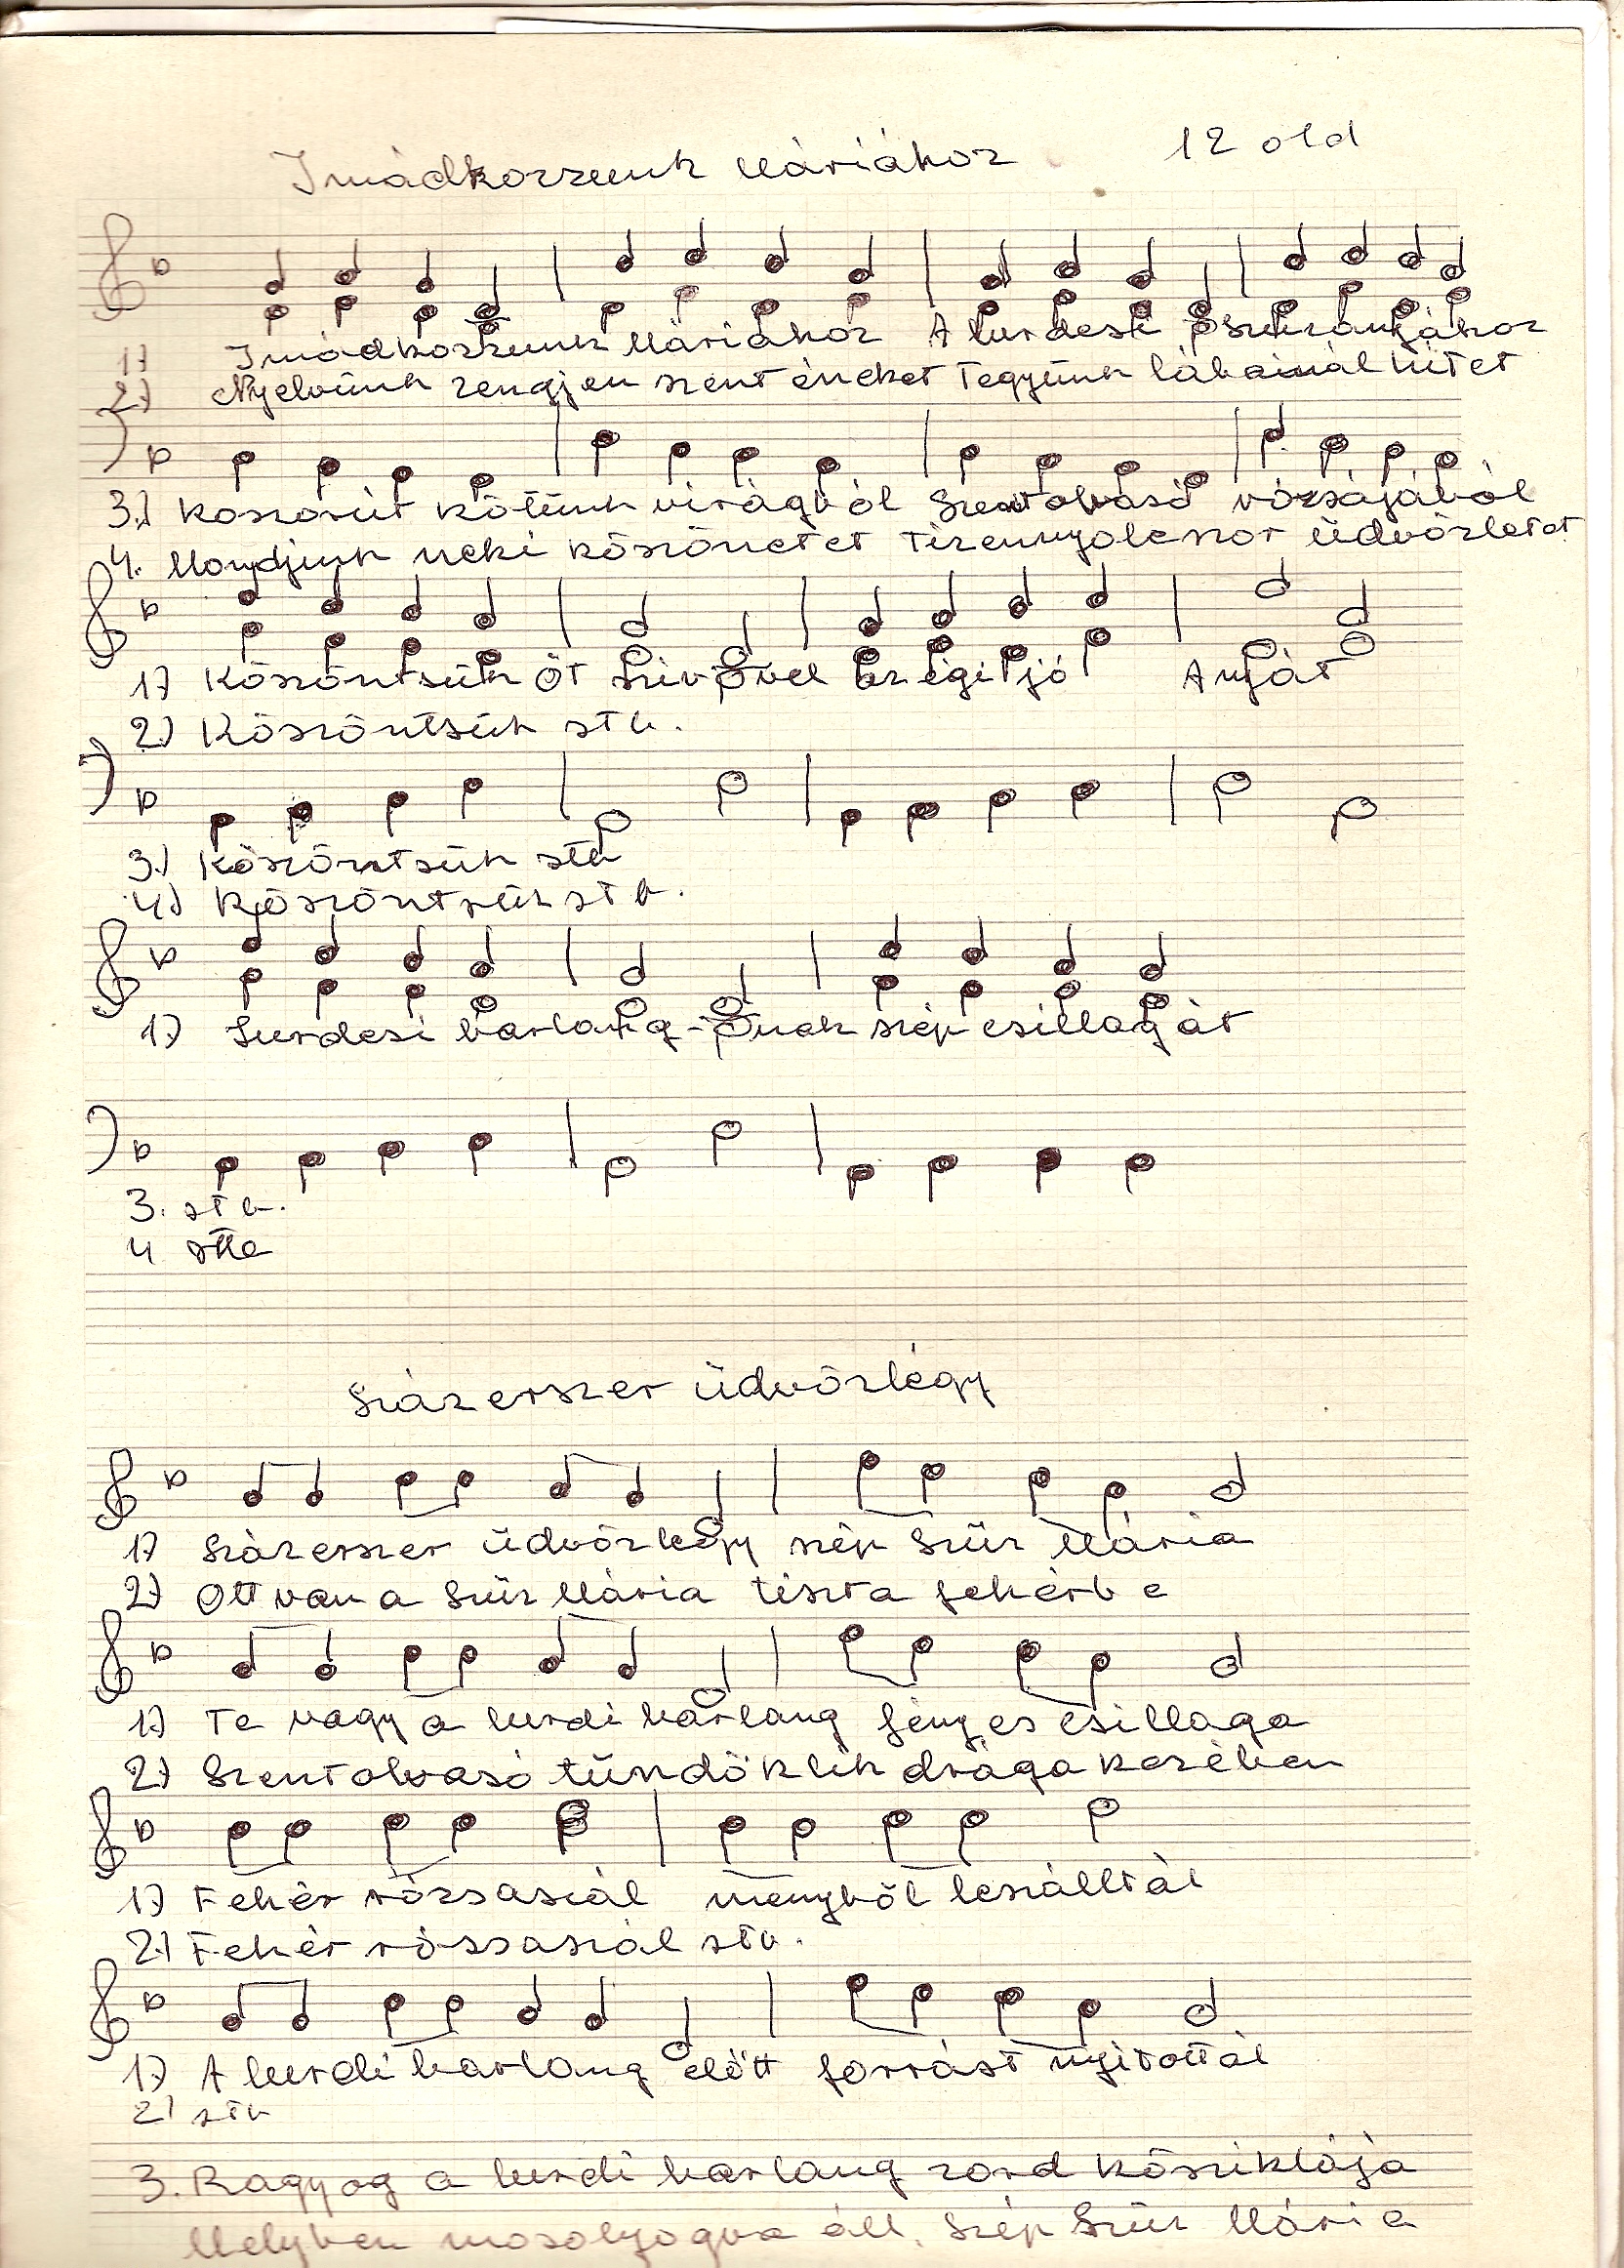 Imádkozzunk Máriához
12 old
1) Imádkozzunk Máriához A lurdesi Szűzanyához
2) Nyelvünk zengjen szent éneket Tegyünk lábainál hitet
3.) Koszorút kötünk virágból Szentolvasó rózsájából
4. Mondjunk neki köszönetet Tizennyolcszor üdvözletet
1) Köszöntsük Őt szivővel az égi jó Anyát
2) Köszöntsük stb.
3.) Köszöntsük stb
4) Köszöntsük stb.
1) Lurdesi barlang-nak szép csillagát
3. stb.
4 stb
Százerszer üdvözlégy
1) Százerszer üdvözlégy szép Szűz Mária
2) Ott van a Szűz Mária tiszta fehérbe
1) Te vagy a lurdi barlang fényes csillaga
2) Szentolvasó tündöklik drága kezében
1) Fehér rózsaszál menyből leszálltál
2) Fehér rózsaszál stb.
1) A lurdi barlang előtt forrást nyitottál
2) stb
3. Ragyog a lurdi barlang zord kősziklája
Melyben mosolyogva áll. Szép Szűz Mária